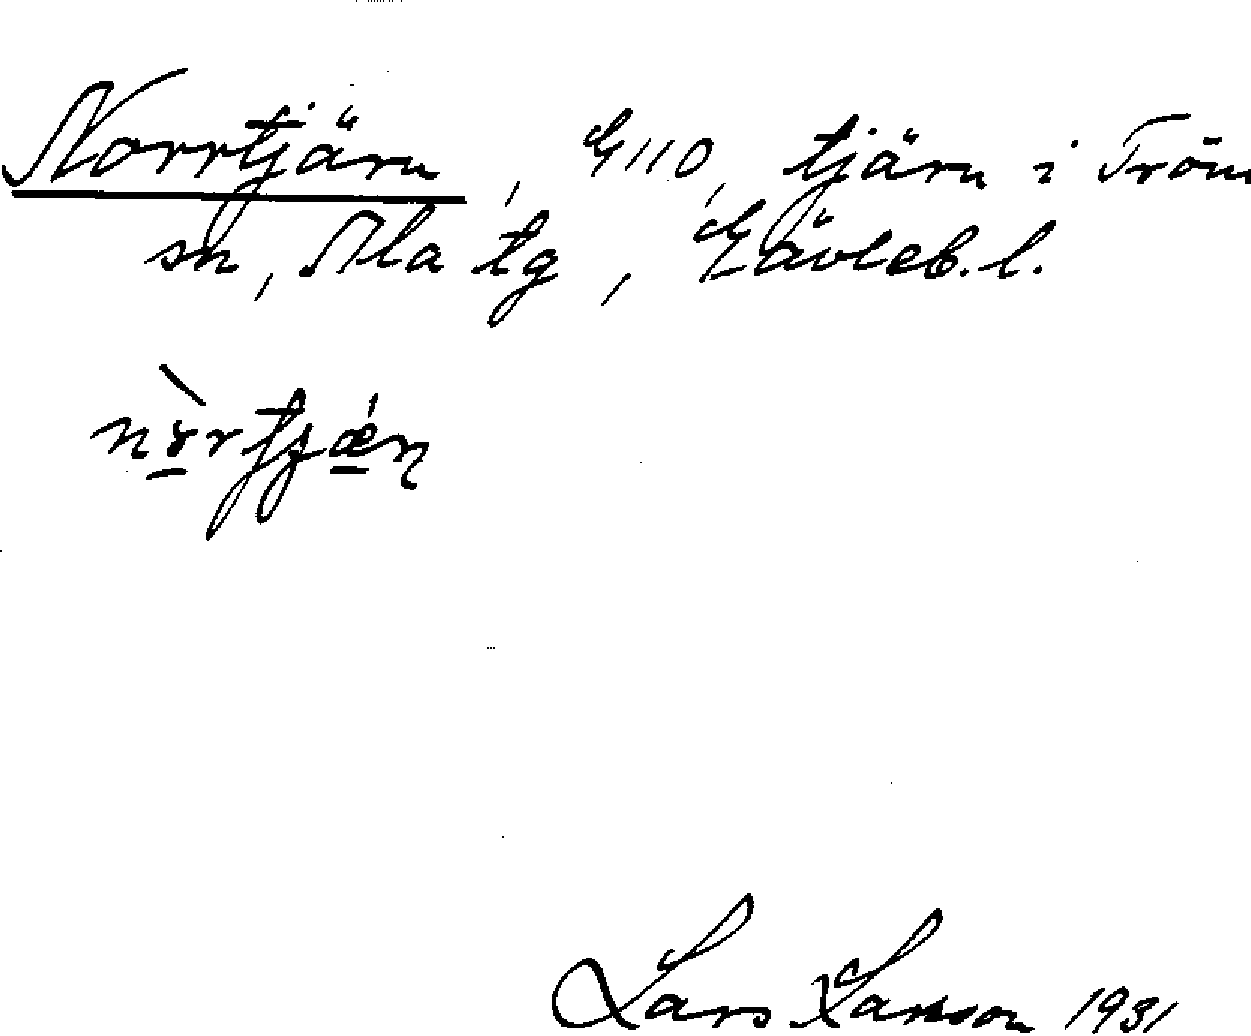 Norrtjärn, G110, tjärn i Tröm
sn, Ala tg, Gävleb. l.
Lars Larsson 1931